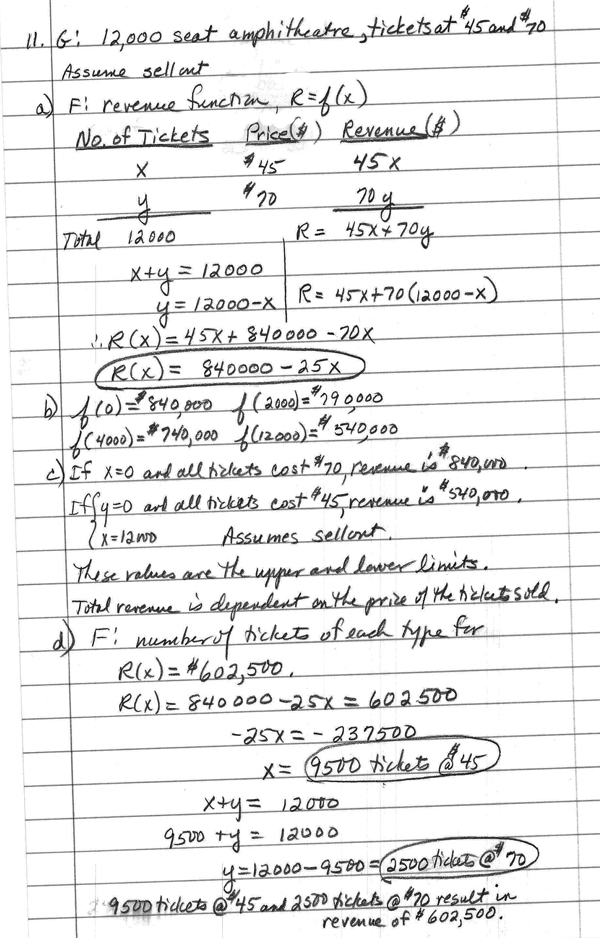 11. G: 12,000 seat amphitheatre, tickets at $45 and $70
Assume sellout
a) F: revenue function, R=f(x)
No. of Tickets Price($) Revenue($)
x $45 45x
y $70 70y
Total 12000 R = 45x+70y
x+y = 12000
y = 12000-x R = 45x+70(12000-x)
∴ R(x) = 45x + 840000 - 70x
R(x) = 840000 - 25x
b) f(0)=$840,000 f(2000)=$790000
f(4000)=$740,000 f(12000)=$540,000
c) If x=0 and all tickets cost $70, revenue is $840,000.
If { y=0 and all tickets cost $45, revenue is $540,000.
x=12000 Assumes sellout.
These values are the upper and lower limits.
Total revenue is dependent on the price of the tickets sold.
d) F: number of tickets of each type for
R(x) = $602,500.
R(x) = 840000 - 25x = 602500
-25x = - 237500
x = 9500 tickets @ $45
x+y = 12000
9500 + y = 12000
y = 12000 - 9500 = 2500 tickets @ $70
9500 tickets @ $45 and 2500 tickets @ $70 result in
revenue of $602,500.